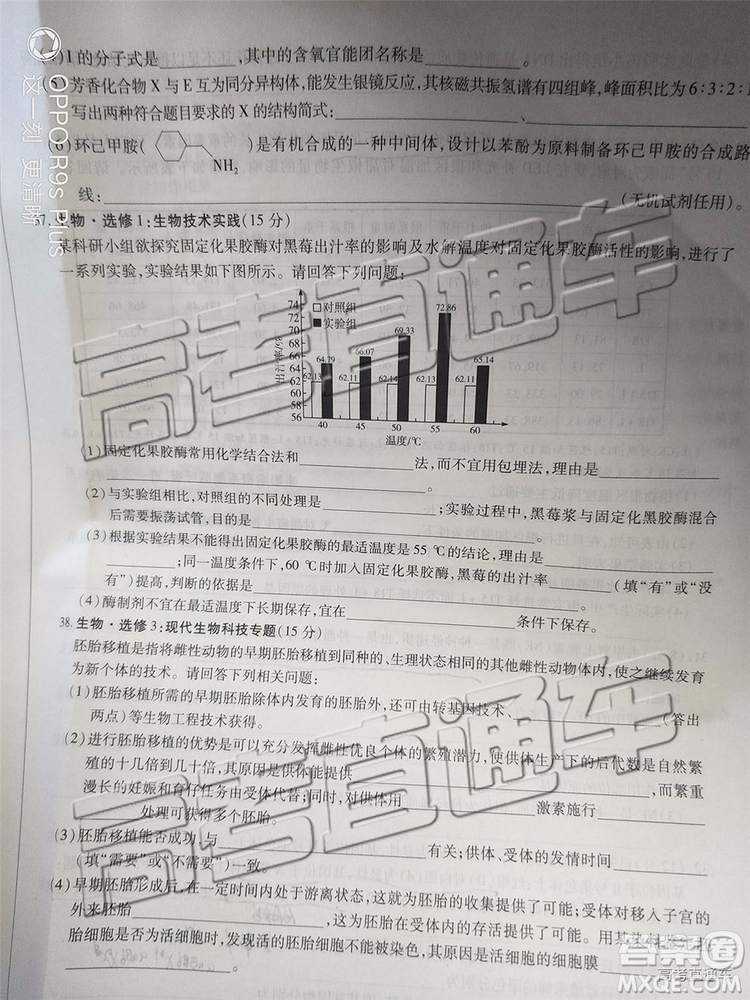 I 的分子式是，其中的含氧官能团名称是。
芳香化合物 X 与 E 互为同分异构体，能发生银镜反应，其核磁共振氢谱有四组峰，峰面积比为 6∶3∶2∶
写出两种符合题目要求的 X 的结构简式：
(6) 环己甲胺( NH₂ )是有机合成的一种中间体，设计以苯酚为原料制备环己甲胺的合成路
线：(无机试剂任用)。
37. 生物·选修 1：生物技术实践(15 分)
某科研小组欲探究固定化果胶酶对黑莓出汁率的影响及水解温度对固定化果胶酶活性的影响，进行了
一系列实验，实验结果如下图所示。请回答下列问题：
出汁率/%
74
72
70
68
66
64
62
60
58
56
对照组
实验组
62.13 64.79
62.11 66.07
62.11 69.33
62.13 72.86
62.11 65.14
40 45 50 55 60
温度/℃
(1)固定化果胶酶常用化学结合法和法，而不宜用包埋法，理由是
。
(2)与实验组相比，对照组的不同处理是；实验过程中，黑莓浆与固定化黑胶酶混合
后需要振荡试管，目的是。
(3)根据实验结果不能得出固定化果胶酶的最适温度是 55 ℃的结论，理由是
；同一温度条件下，60 ℃时加入固定化果胶酶，黑莓的出汁率(填“有”或“没
有”)提高，判断的依据是。
(4)酶制剂不宜在最适温度下长期保存，宜在条件下保存。
38. 生物·选修 3：现代生物科技专题(15 分)
胚胎移植是指将雌性动物的早期胚胎移植到同种的、生理状态相同的其他雌性动物体内，使之继续发育
为新个体的技术。请回答下列相关问题：
(1)胚胎移植所需的早期胚胎除体内发育的胚胎外，还可由转基因技术、(答出
两点)等生物工程技术获得。
(2)进行胚胎移植的优势是可以充分发挥雌性优良个体的繁殖潜力，使供体生产下的后代数是自然繁
殖的十几倍到几十倍，其原因是供体能提供，而繁重
漫长的妊娠和育仔任务由受体代替；同时，对供体用激素施行
处理可获得多个胚胎。
(3)胚胎移植能否成功，与有关；供体、受体的发情时间
(填“需要”或“不需要”)一致。
(4)早期胚胎形成后，在一定时间内处于游离状态，这就为胚胎的收集提供了可能。受体对移入子宫的
外来胚胎，这为胚胎在受体内的存活提供了可能。用某染料鉴定
胎细胞是否为活细胞时，发现活的胚胎细胞不能被染色，其原因是活细胞的细胞膜
。
OPPO R9s Plus
这一刻 更清晰
高考直通车
高考直通车
高考直通车
答案圈
MXQE.COM